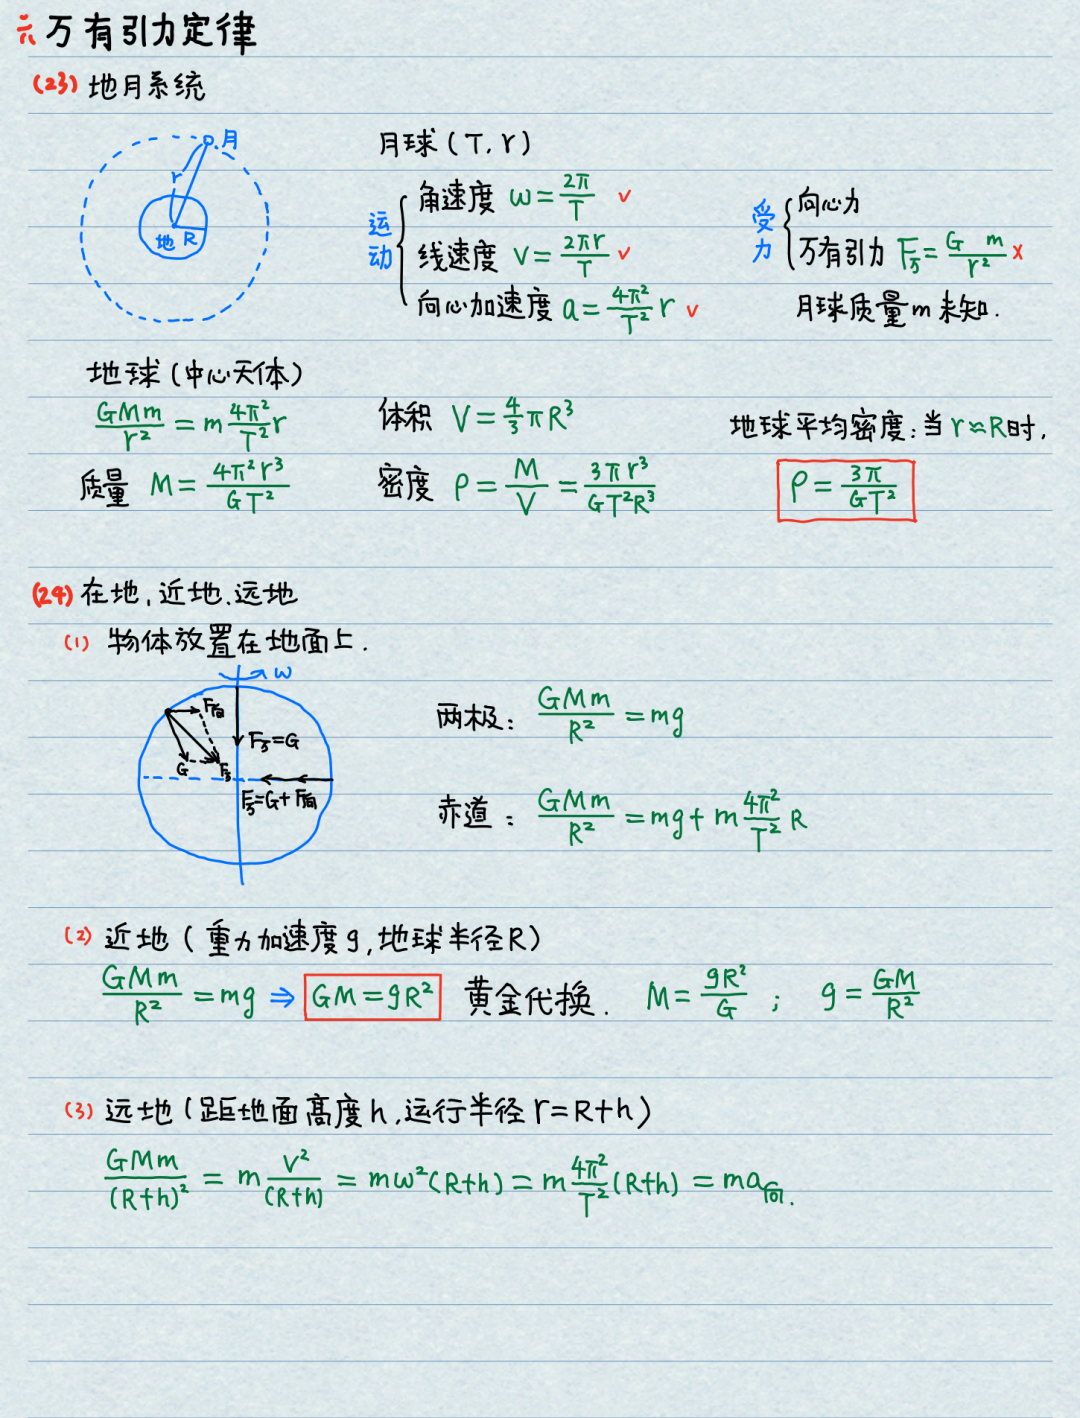 六 万有引力定律
(23) 地月系统
月
r
地 R
月球 (T, r)
运动
角速度 ω = 2π/T ✓
线速度 v = 2πr/T ✓
向心加速度 a = 4π²/T² r ✓
受力
向心力
万有引力 F万 = G m/r² ×
月球质量m未知.
地球 (中心天体)
GMm/r² = m 4π²/T² r
质量 M = 4π²r³/GT²
体积 V = 4/3 πR³
密度 ρ = M/V = 3πr³/GT²R³
地球平均密度: 当 r≈R时,
ρ = 3π/GT²
(24) 在地, 近地, 远地
(1) 物体放置在地面上.
ω
F向
F万=G
G F万
F万=G+F向
两极: GMm/R² = mg
赤道: GMm/R² = mg + m 4π²/T² R
(2) 近地 (重力加速度g, 地球半径R)
GMm/R² = mg ⇒ GM = gR² 黄金代换. M = gR²/G ; g = GM/R²
(3) 远地 (距地面高度h, 运行半径 r=R+h)
GMm/(R+h)² = m v²/(R+h) = mω²(R+h) = m 4π²/T² (R+h) = ma向.